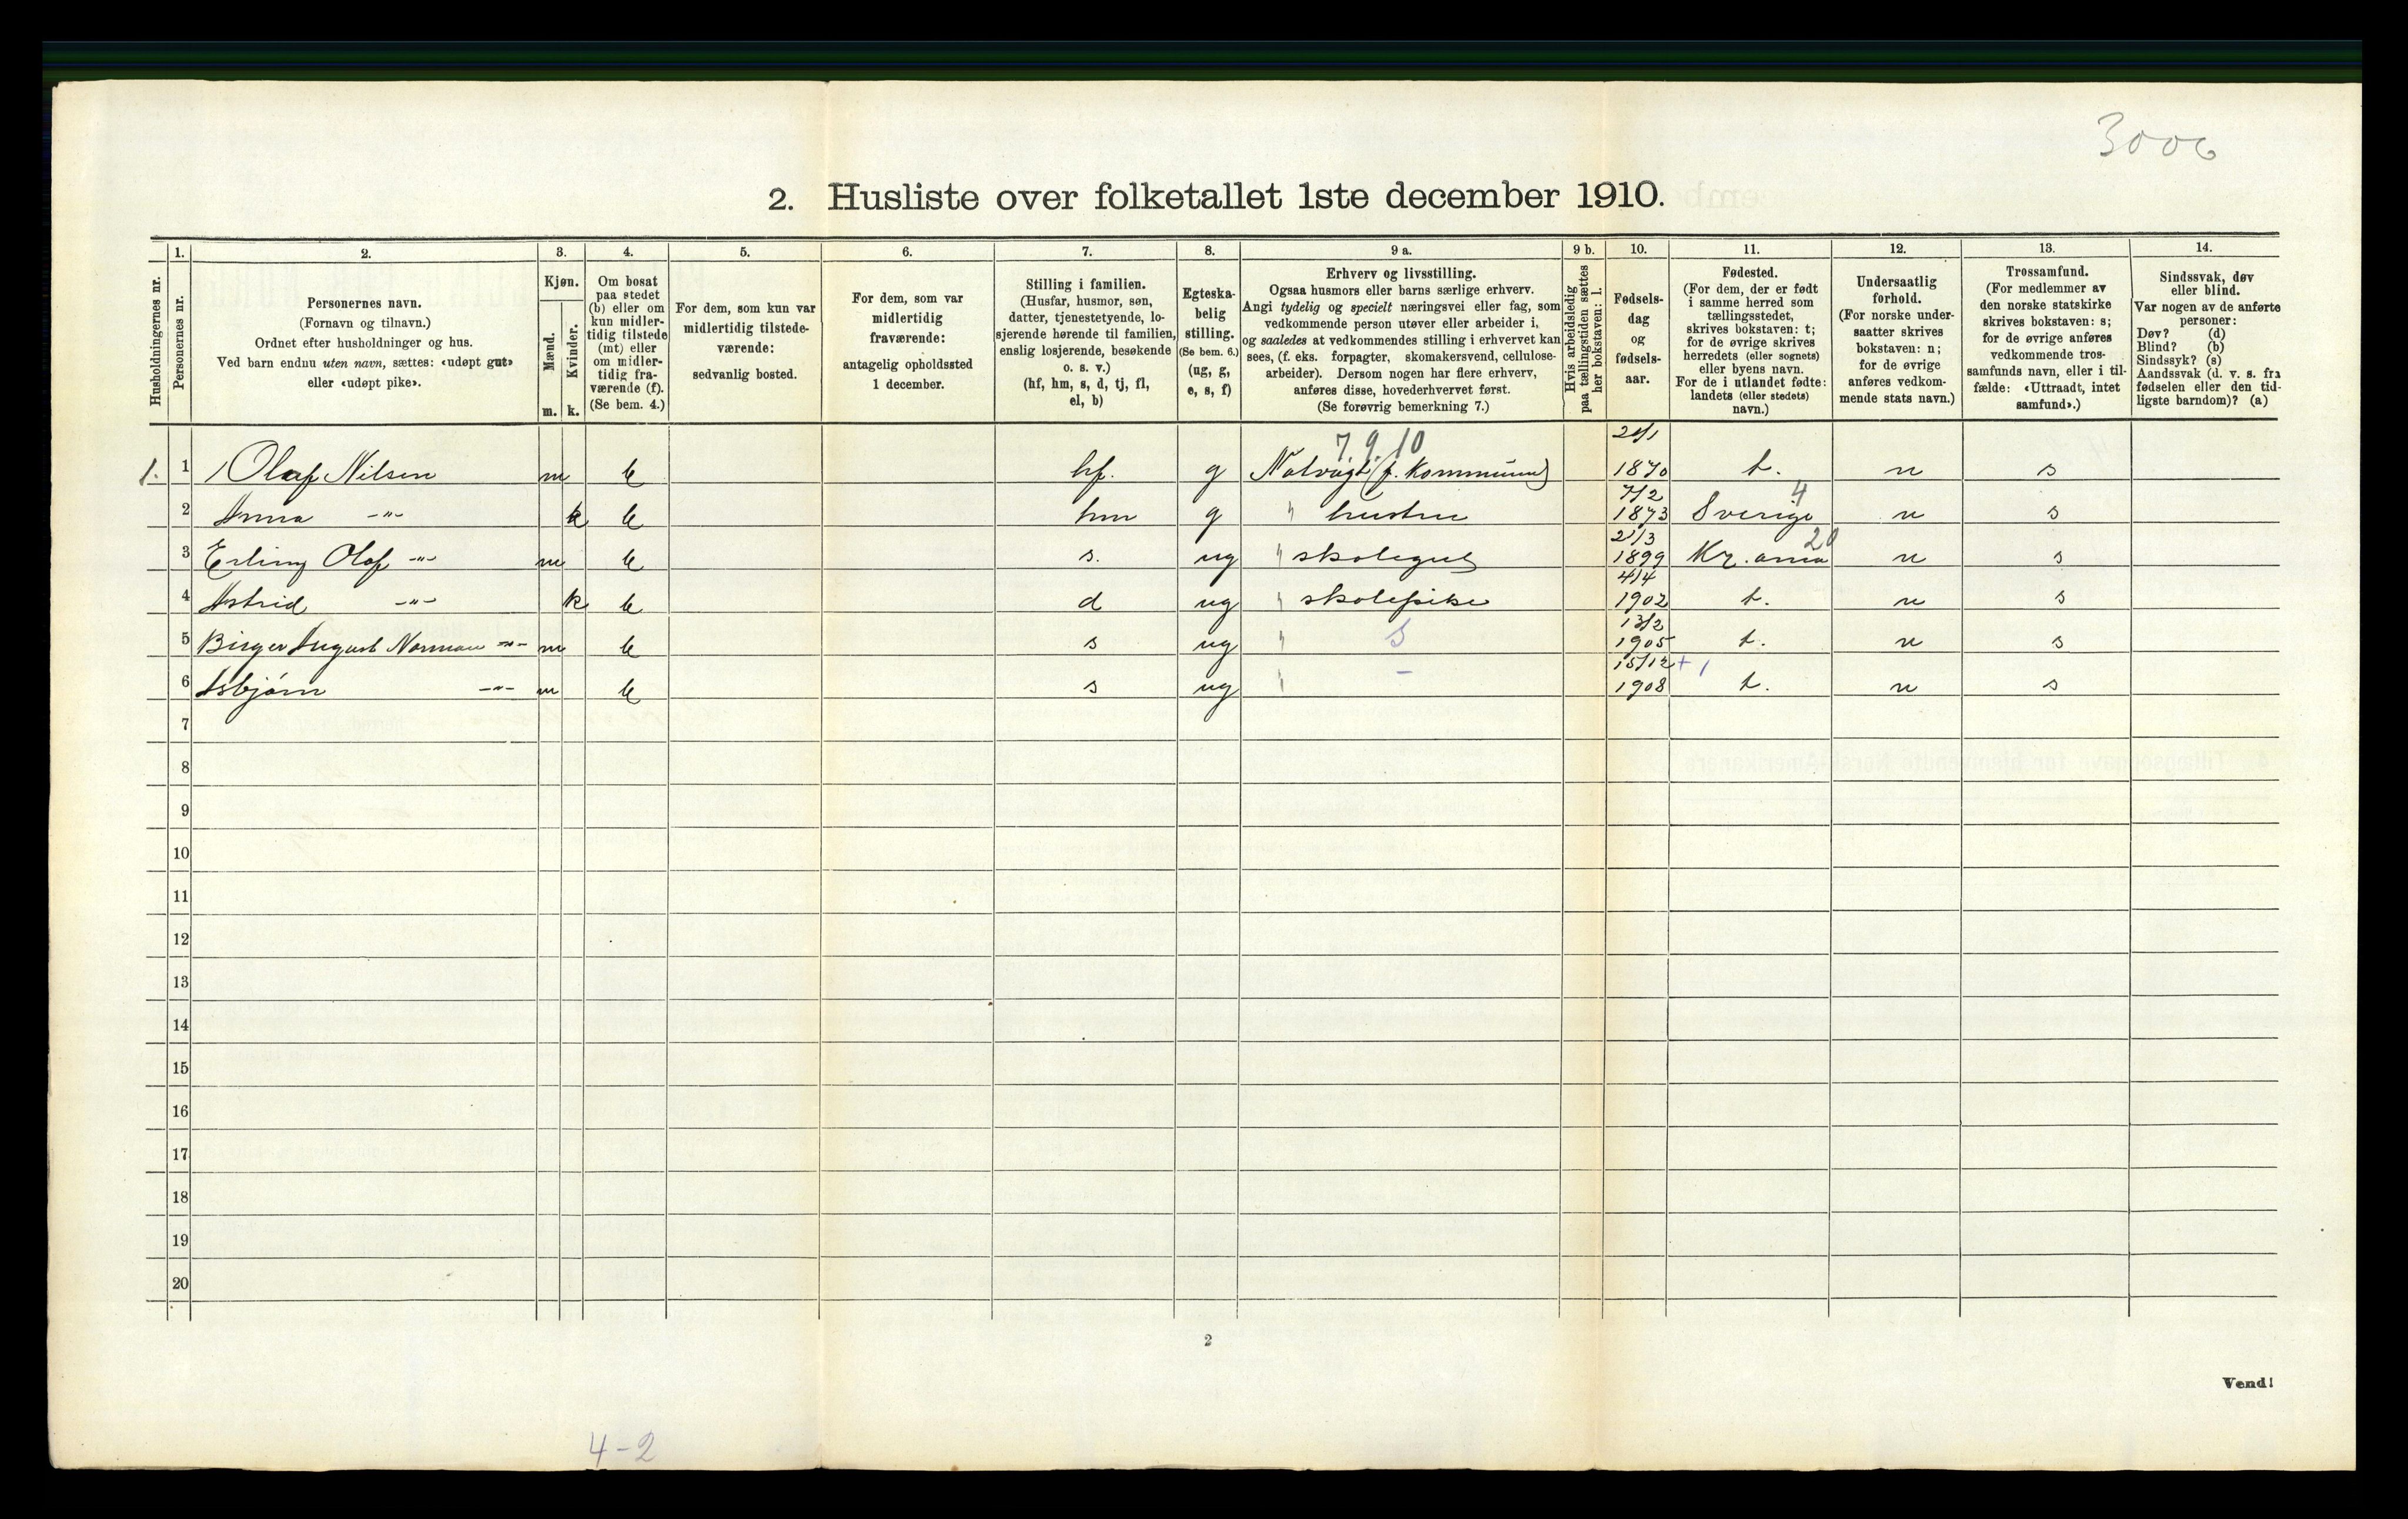 3006
2. Husliste over folketallet 1ste december 1910.
Husholdningernes nr.
1. Personernes nr.
2. Personernes navn.
(Fornavn og tilnavn.)
Ordnet efter husholdninger og hus.
Ved barn endnu uten navn, sættes: «udøpt gut»
eller «udøpt pike».
3. Kjøn.
Mænd. m.
Kvinder. k.
4. Om bosat
paa stedet
(b) eller om
kun midler-
tidig tilstede
(mt) eller
om midler-
tidig fra-
værende (f).
(Se bem. 4.)
5. For dem, som kun var
midlertidig tilstede-
værende:
sedvanlig bosted.
6. For dem, som var
midlertidig
fraværende:
antagelig opholdssted
1 december.
7. Stilling i familien.
(Husfar, husmor, søn,
datter, tjenestetyende, lo-
sjerende hørende til familien,
enslig losjerende, besøkende
o. s. v.)
(hf, hm, s, d, tj, fl,
el, b)
8. Egteska-
belig
stilling.
(Se bem. 6.)
(ug, g,
e, s, f)
9 a. Erhverv og livsstilling.
Ogsaa husmors eller barns særlige erhverv.
Angi tydelig og specielt næringsvei eller fag, som
vedkommende person utøver eller arbeider i,
og saaledes at vedkommendes stilling i erhvervet kan
sees, (f. eks. forpagter, skomakersvend, cellulose-
arbeider). Dersom nogen har flere erhverv,
anføres disse, hovederhvervet først.
(Se forøvrig bemerkning 7.)
9 b. Hvis arbeidsledig
paa tællingstiden sættes
her bokstaven: l.
10. Fødsels-
dag
og
fødsels-
aar.
11. Fødested.
(For dem, der er født
i samme herred som
tællingsstedet,
skrives bokstaven: t;
for de øvrige skrives
herredets (eller sognets)
eller byens navn.
For de i utlandet fødte:
landets (eller stedets)
navn.)
12. Undersaatlig
forhold.
(For norske under-
saatter skrives
bokstaven: n;
for de øvrige
anføres vedkom-
mende stats navn.)
13. Trossamfund.
(For medlemmer av
den norske statskirke
skrives bokstaven: s;
for de øvrige anføres
vedkommende tros-
samfunds navn, eller i til-
fælde: «Uttraadt, intet
samfund».)
14. Sindssvak, døv
eller blind.
Var nogen av de anførte
personer:
Døv? (d)
Blind? (b)
Sindssyk? (s)
Aandssvak (d. v. s. fra
fødselen eller den tid-
ligste barndom)? (a)
7.9.10
1. 1 Olaf Nilsen m b hf. g Natvagt (f. Kommune) 1870 t. n s
2 Anna -"- k b hm g " hustru 7/2 1873 Sverige 4 n s
3 Erling Olaf -"- m b s. ug " skolegut 21/3 1899 Kr.ania 20 n s
4 Astrid -"- k b d ug " skolepike 4/4 1902 t. n s
5 Birger August Norman -"- m b s ug " S 13/2 1905 t. n s
6 Asbjørn -"- m b s ug " - 15/12 1908 + 1 t. n s
7
8
9
10
11
12
13
14
15
16
17
18
19
20
2
Vend!
4-2